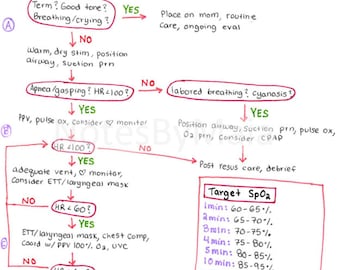 Term? Good tone?
Breathing/crying?
YES
Place on mom, routine
care, ongoing eval
A
NO
Warm, dry stim, position
airway, suction prn
Apnea/gasping? HR<100?
NO
labored breathing? Cyanosis?
YES
YES
PPV, pulse ox, consider ♡ monitor
Position airway, suction prn, pulse ox,
O2 prn, consider CPAP
B
HR<100?
NO
YES
Post resus care, debrief
adequate vent, ♡ monitor,
Consider ETT/laryngeal mask
NO
HR<60?
YES
ETT/laryngeal mask, chest Comp,
Coord w/ PPV 100% O2, UVC
C
Target SpO2
1min: 60-65%
2min: 65-70%
3min: 70-75%
4min: 75-80%
5min: 80-85%
10min: 85-95%
NotesBy